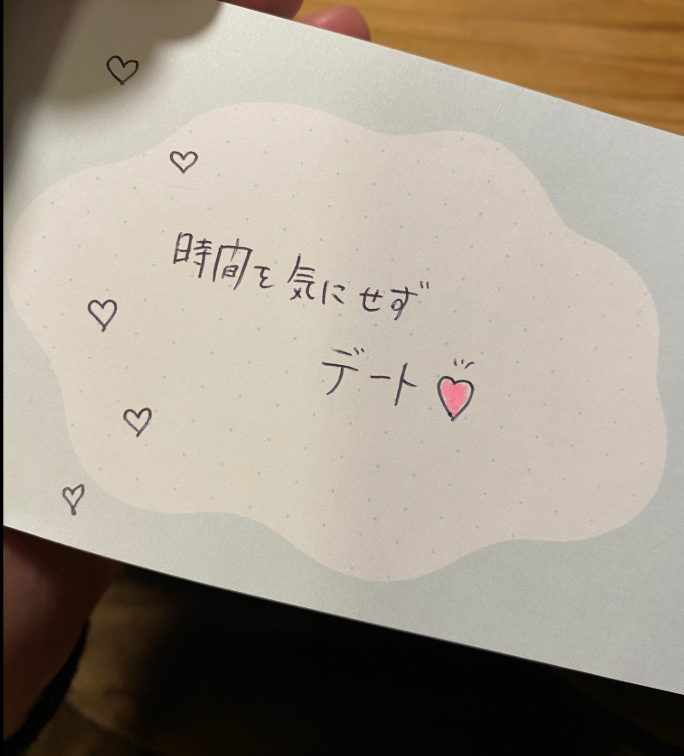 時間を気にせず
デート